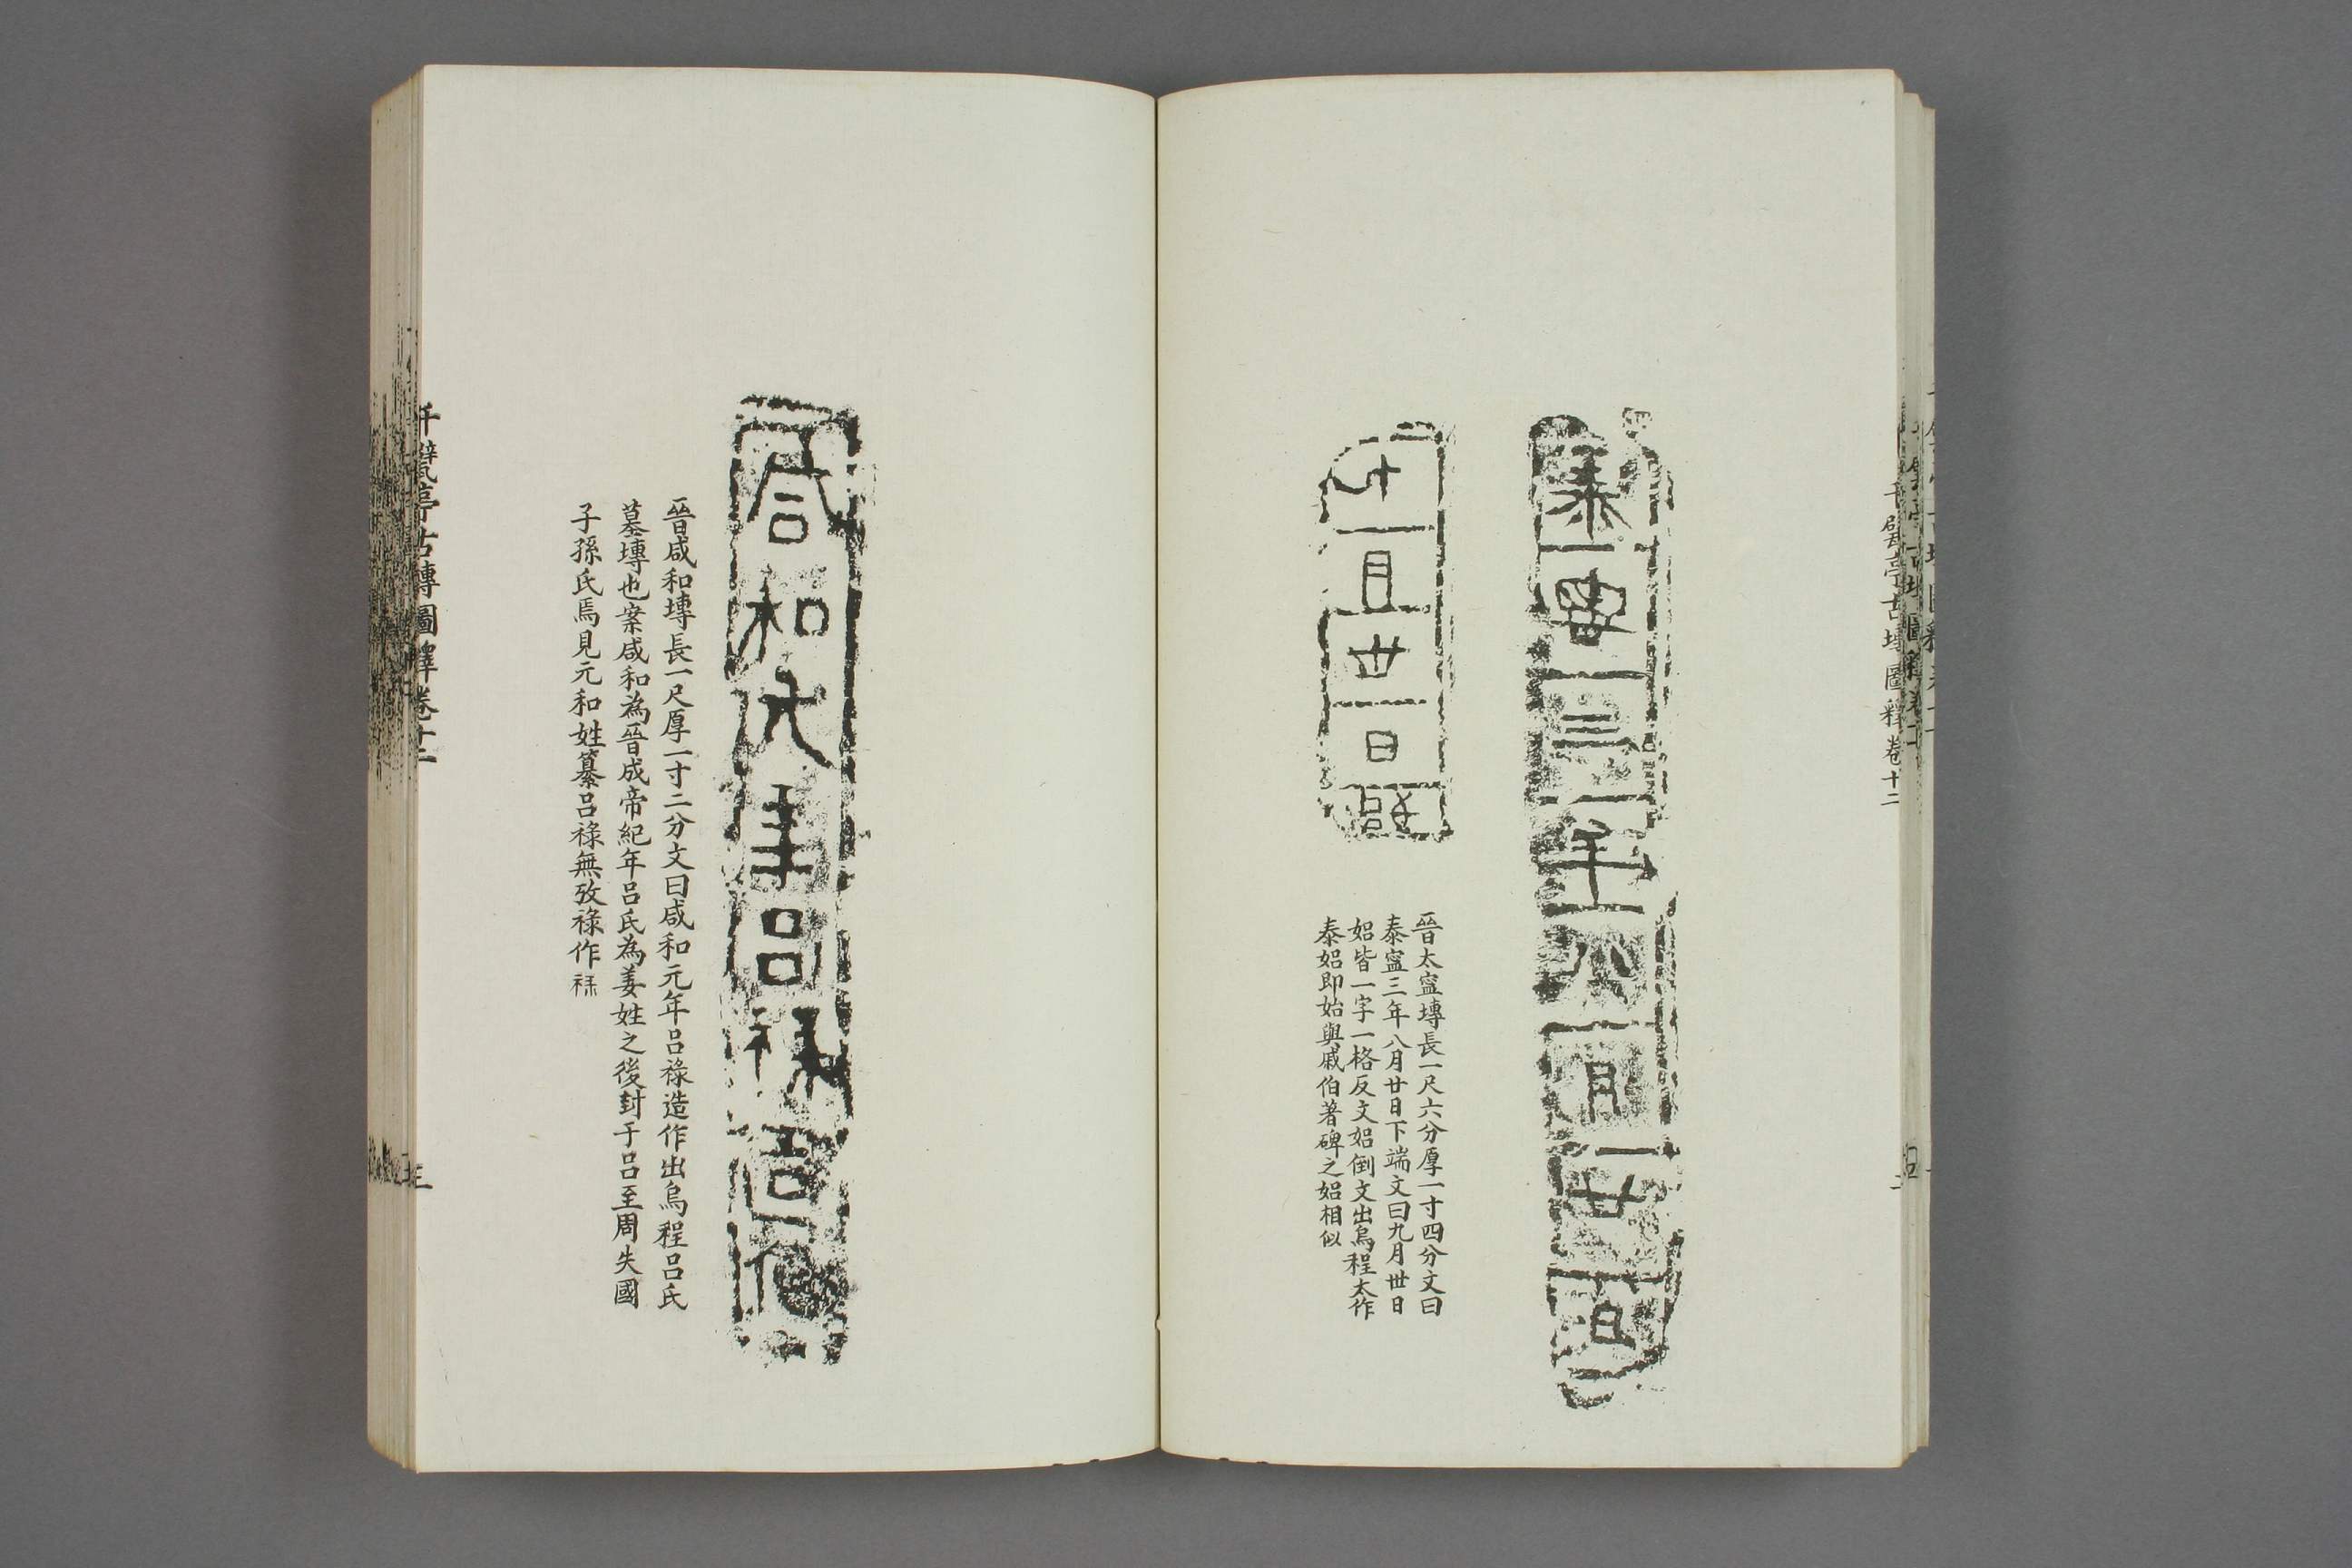 泰寍三年八月廿日
九月卅日㚶
晉太寍塼長一尺六分厚一寸四分文曰
泰寍三年八月廿日下端文曰九月卅日
㚶皆一字一格反文㚶倒文出烏程太作
泰㚶即始與戚伯著碑之㚶相似
千甓亭古塼圖釋卷十二
二
咸和元年呂祿造作
晉咸和塼長一尺厚一寸二分文曰咸和元年呂祿造作出烏程呂氏
墓塼也案咸和為晉成帝紀年呂氏為姜姓之後封于呂至周失國
子孫氏焉見元和姓纂呂祿無攷祿作
千甓亭古塼圖釋卷十二
三